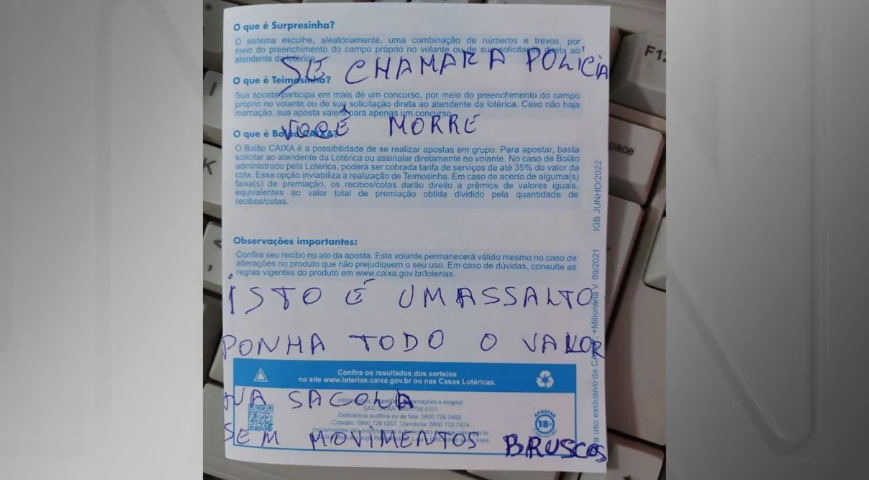 O que é Surpresinha?
O sistema escolhe, aleatoriamente, uma combinação de números e trevos, por
meio do preenchimento do campo próprio no volante ou de sua solicitação direta ao
atendente da lotérica.
SE CHAMAR A POLÍCIA
O que é Teimosinha?
Sua aposta participa em mais de um concurso, por meio do preenchimento do campo
próprio no volante ou de sua solicitação direta ao atendente da lotérica. Caso não haja
marcação, sua aposta valerá para apenas um concurso.
VOCÊ MORRE
O que é Bolão CAIXA?
O Bolão CAIXA é a possibilidade de se realizar apostas em grupo. Para apostar, basta
solicitar ao atendente da Lotérica ou assinalar diretamente no volante. No caso de Bolão
administrado pela Lotérica, poderá ser cobrada tarifa de serviços de até 35% do valor da
cota. Essa opção inviabiliza a realização de Teimosinha. Em caso de acerto de alguma(s)
faixa(s) de premiação, os recibos/cotas darão direito a prêmios de valores iguais,
equivalentes ao valor total de premiação obtida dividido pela quantidade de
recibos/cotas.
Observações importantes:
Confira seu recibo no ato da aposta. Este volante permanecerá válido mesmo no caso de
alterações no produto que não prejudiquem o seu uso. Em caso de dúvidas, consulte as
regras vigentes do produto em www.caixa.gov.br/loterias.
ISTO É UM ASSALTO
PONHA TODO O VALOR
Confira os resultados dos sorteios
no site www.loterias.caixa.gov.br ou nas Casas Lotéricas.
NA SACOLA
SAC CAIXA: 0800 726 0101
Deficientes auditivos ou de fala: 0800 726 2492
0800 726 0207 Ouvidoria: 0800 725 7474
SEM MOVIMENTOS BRUSCOS
18+
uso exclusivo da +Milionária V. 09/2021 IGB JUNHO/2022
F12
K